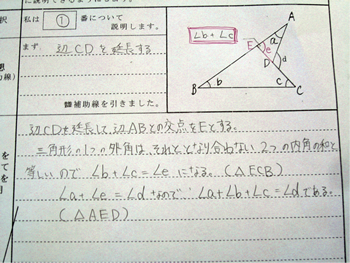 私は ① 番について
説明します。
まず、辺CDを延長する
補助線を引きました。
∠b + ∠c
A
a
E
e
D
d
B
b
c
C
辺CDを延長して辺ABとの交点をEとする。
三角形の1つの外角は、それととなり合わない2つの内角の和と
等しいので ∠b + ∠c = ∠e になる。(△ECB)
∠a + ∠e = ∠d なので ∠a + ∠b + ∠c = ∠d である。
(△AED)